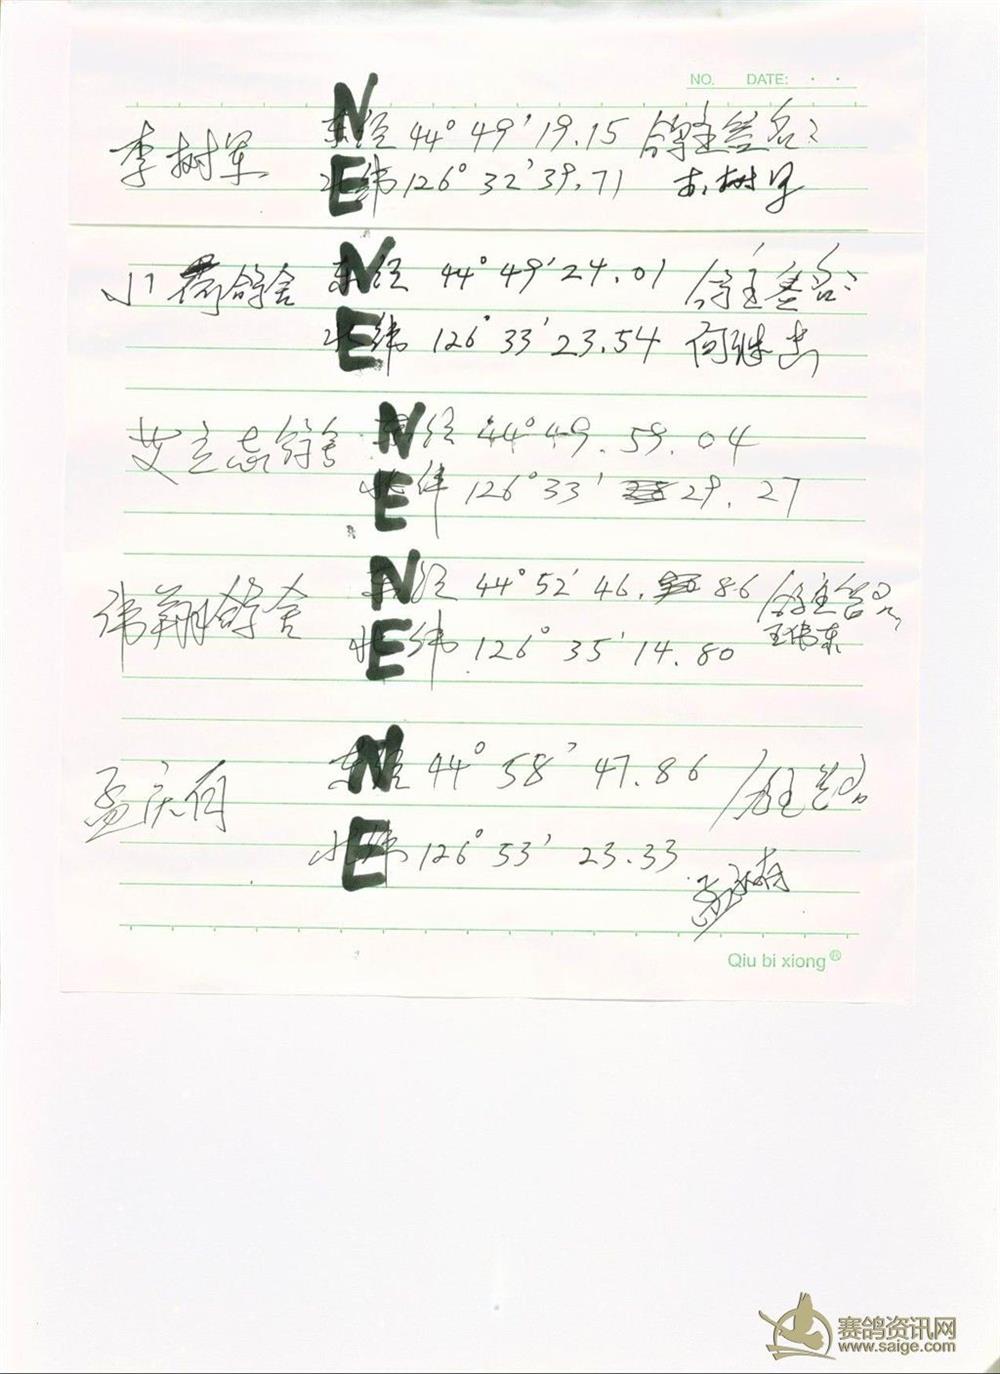 NO. DATE:
李树军 N 东经 44° 49' 19.15 鸽主签名:
E 北纬 126° 32' 39.71 李树军
小荷鸽舍 N 东经 44° 49' 24.01 鸽主签名:
E 北纬 126° 33' 23.54 何继忠
艾立志鸽舍 N 东经 44° 49. 59. 04
E 北纬 126° 33' 29. 27
伟翔鸽舍 N 东经 44° 52' 46. 86 鸽主签名
E 北纬 126° 35' 14. 80 王伟东
孟庆 N 东经 44° 58' 47.86 鸽主签名
E 北纬 126° 53' 23.33 孟
Qiu bi xiong®
赛鸽资讯网
www.saige.com